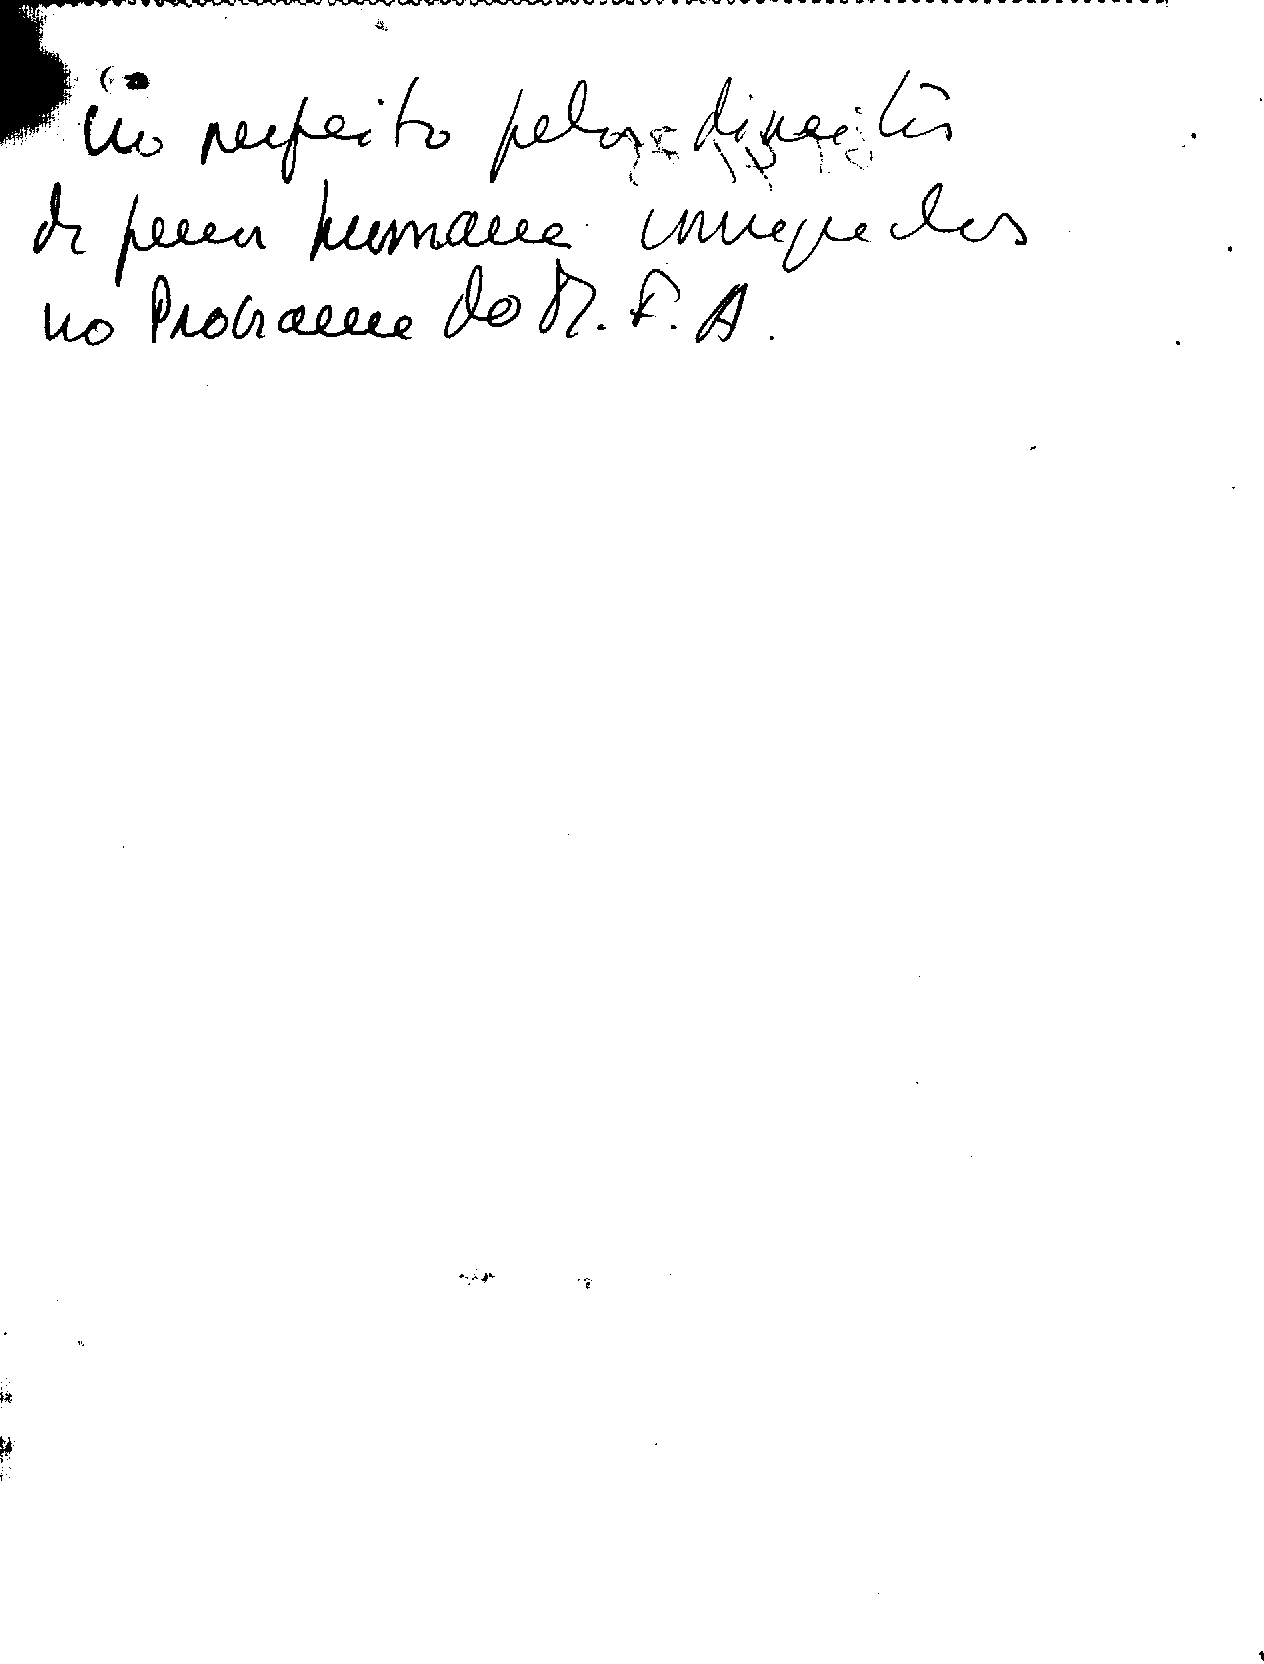 no respeito pelos direitos
da pessoa humana consagrados
no Programa do M.F.A.